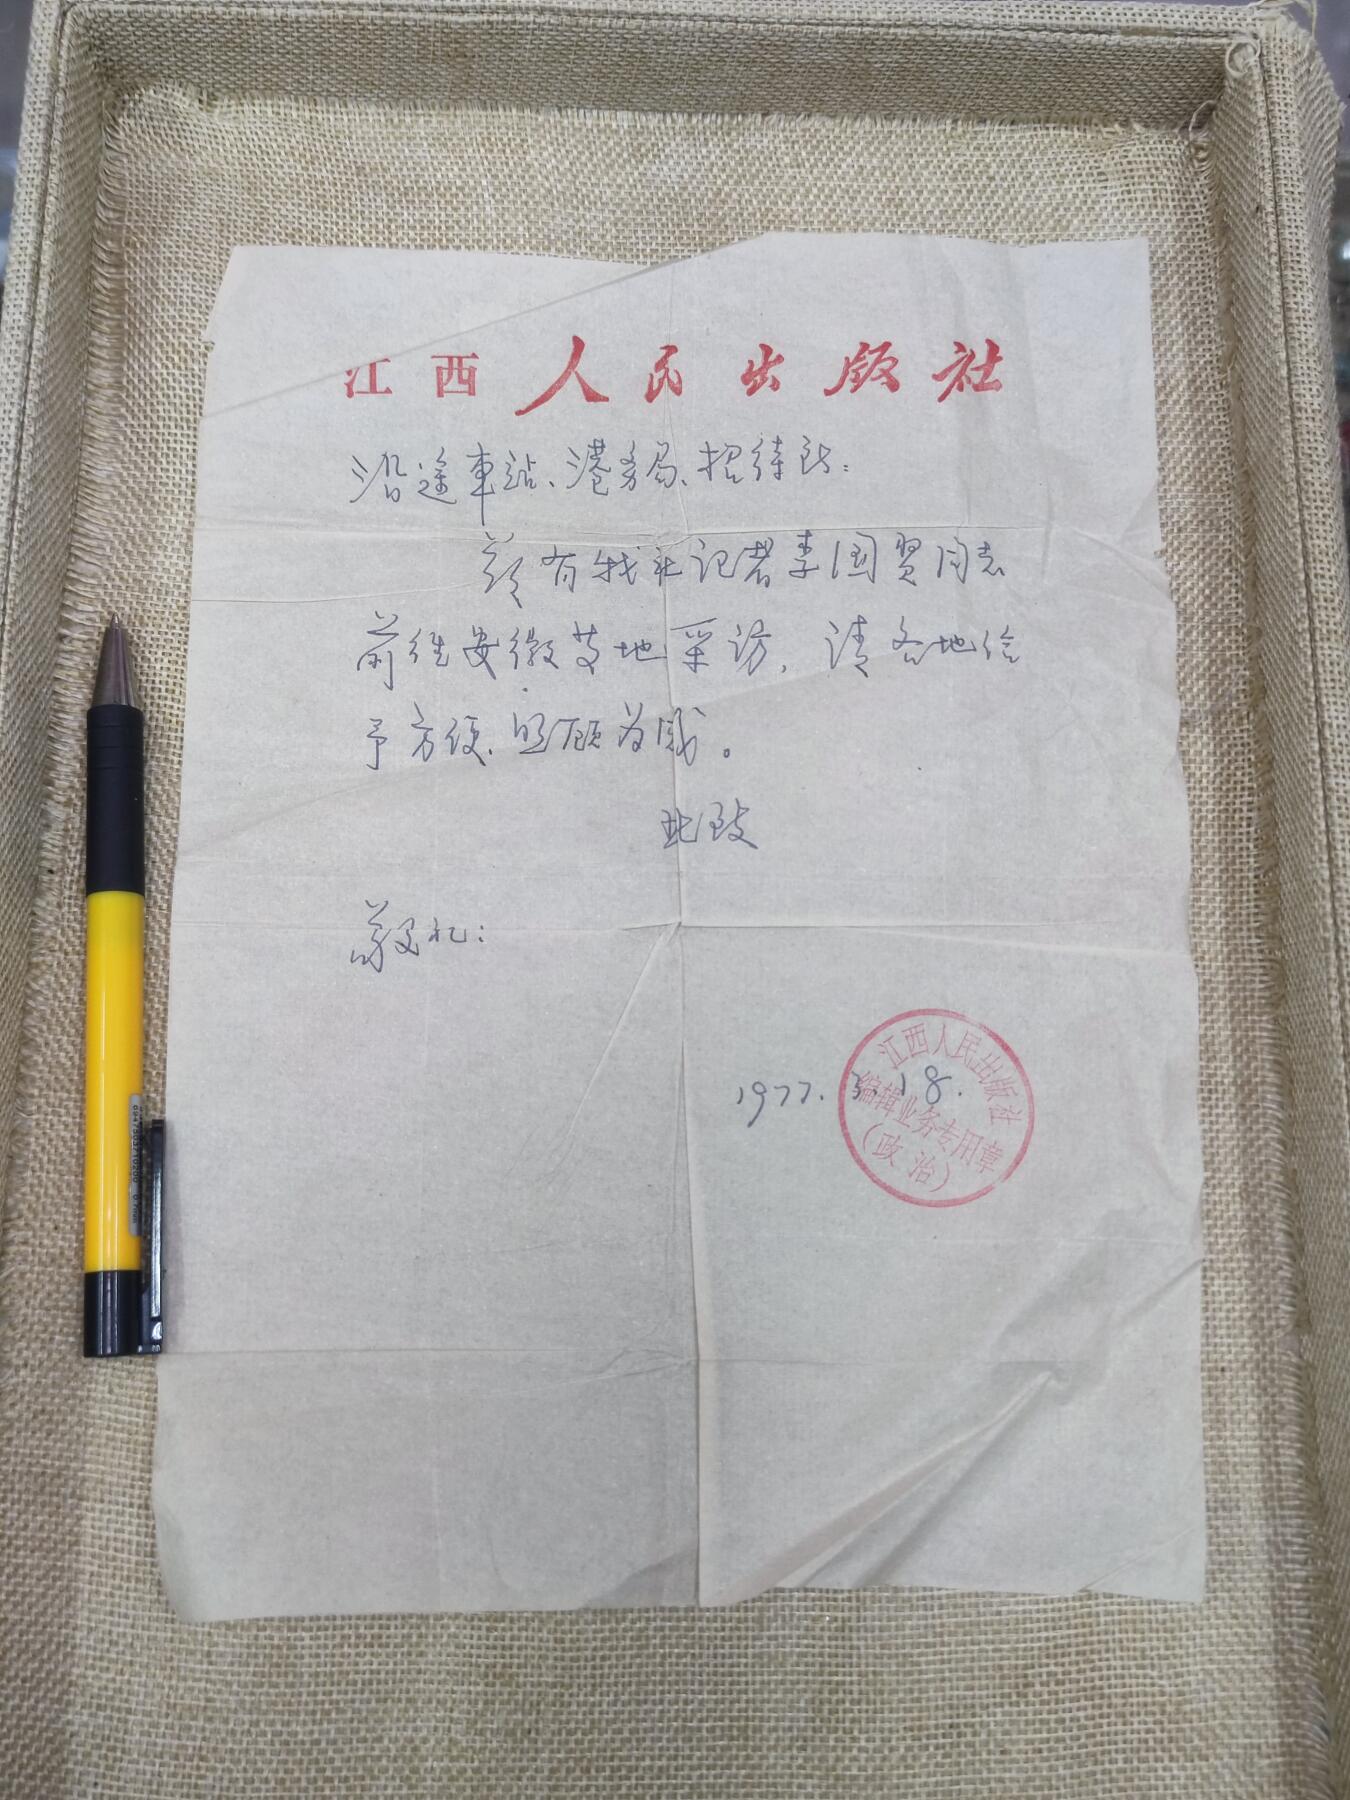 江西人民出版社
沿途車站、港务局、招待所:
兹有我社记者李国贤同志
前往安徽等地采访,请各地给
予方便、照顾为感。
此致
敬礼:
1977.3.18.
江西人民出版社
编辑业务专用章
(政治)